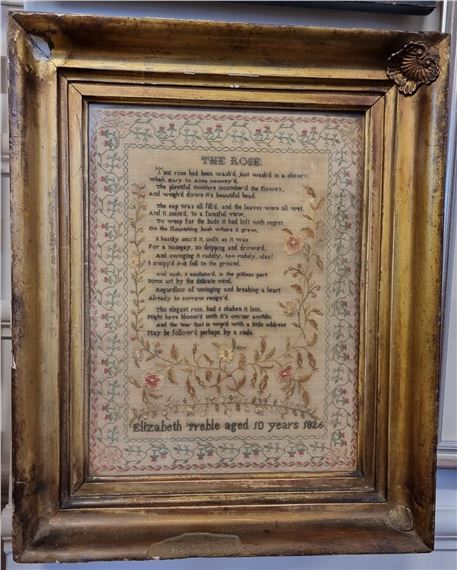 THE ROSE.
THE rose had been wash'd, just wash'd in a show'r
Which Mary to Anna convey'd,
The plentiful moisture incumber'd the flower,
And weigh'd down it's beautiful head.
The cup was all fill'd, and the leaves were all wet,
And it seem'd, to a fanciful view,
To weep for the buds it had left with regret
On the flourishing bush where it grew,
I hastily seiz'd it, unfit as it was
For a nosegay, so dripping and drown'd,
And swinging it rudely, too rudely, alas!
I snapp'd it-it fell to the ground,
And such, I exclaim'd, is the pitless part
Some act by the delicate mind,
Regardless of wringing and breaking a heart
Already to sorrow resign'd.
This elegant rose, had I shaken it less,
Might have bloom'd with it's owner awhile,
And the tear that is wip'd with a little address
May be follow'd perhaps by a smile.
Elizabeth Treble aged 10 years 1826